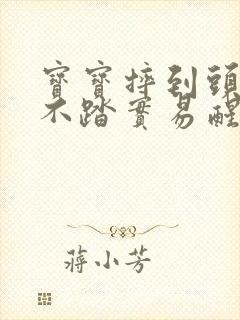 寶寶摔到頭
不踏實易醒
蔣小芳